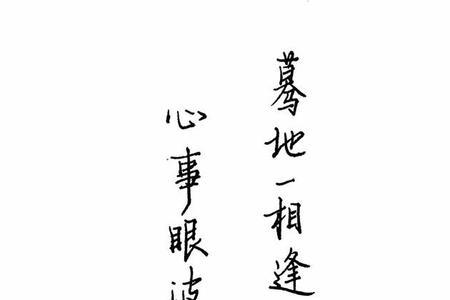 蓦地一相逢
心事眼波